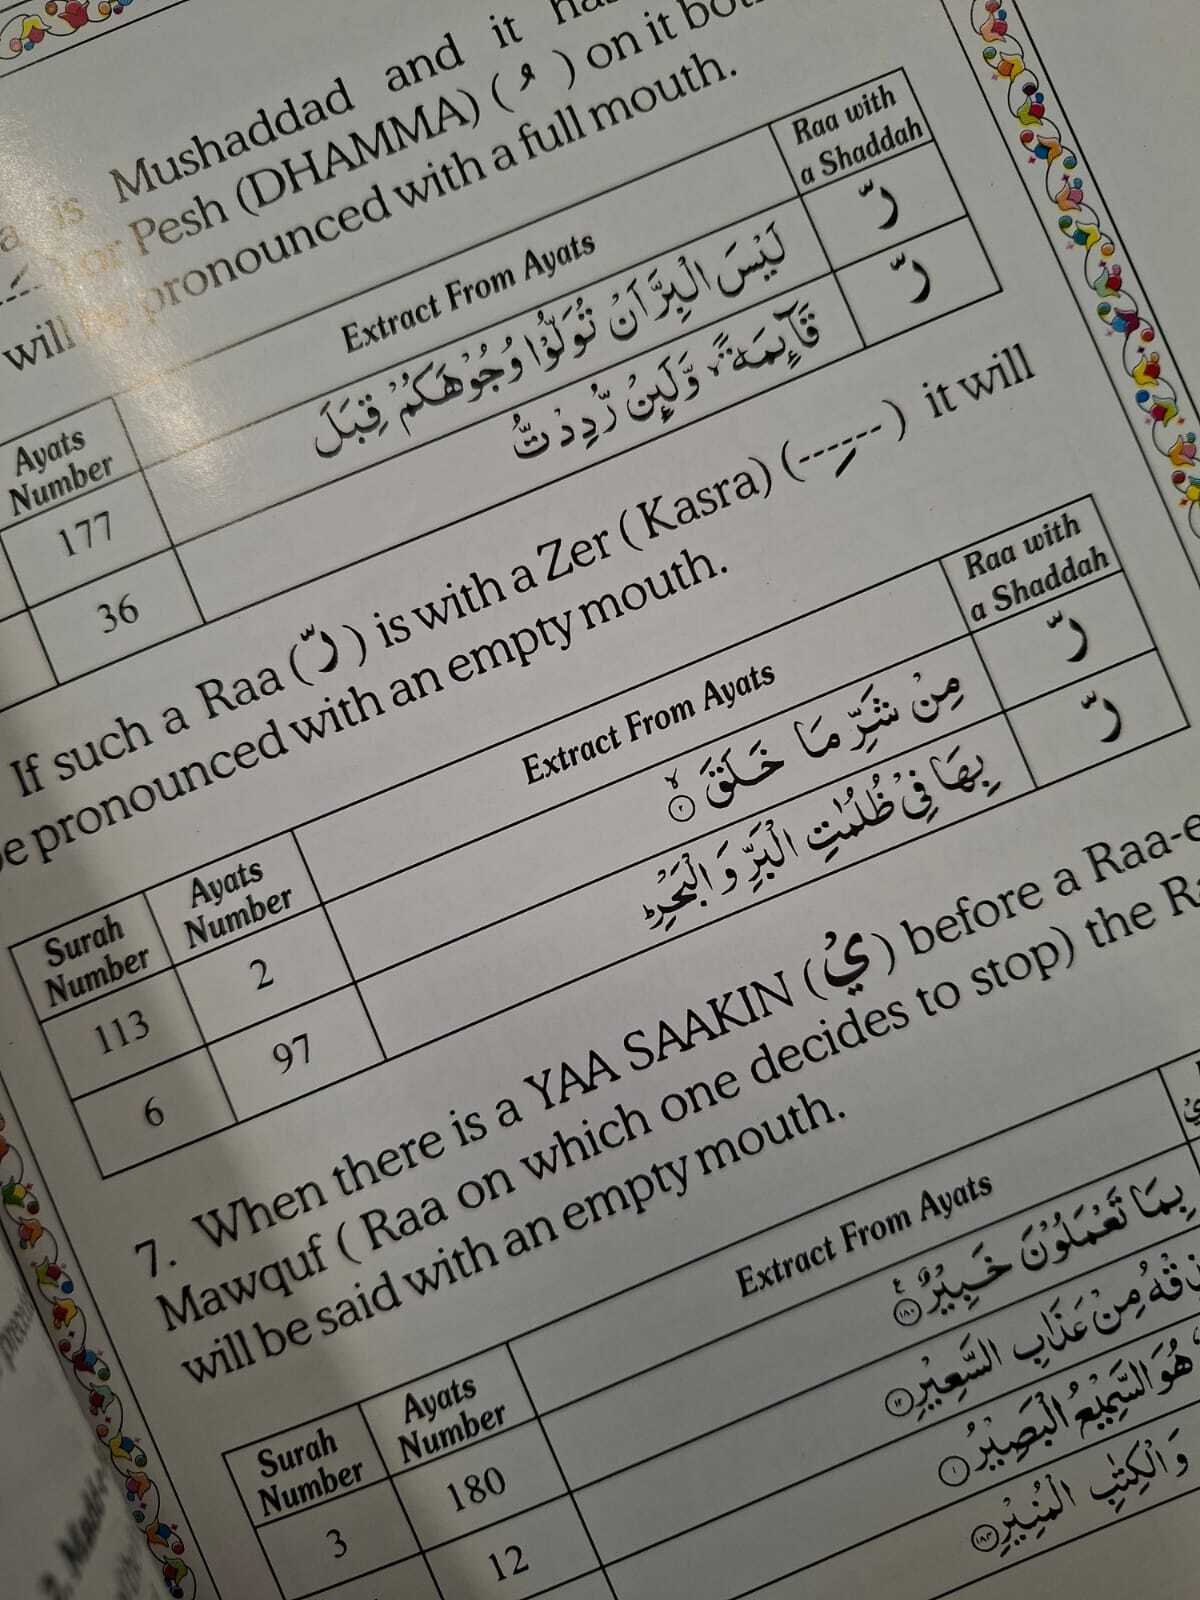 is Mushaddad and it
or Pesh (DHAMMA) ( ُ ) on it
will be pronounced with a full mouth.
Ayats Number | Extract From Ayats | Raa with a Shaddah
177 | لَيْسَ الْبِرَّ اَنْ تُوَلُّوْا وُجُوْهَكُمْ قِبَلَ | رّ
36 | قَآىِٕمَةً ۙ وَّلَىِٕنْ رُّدِدْتُّ | رّ
If such a Raa ( رّ ) is with a Zer ( Kasra) (---ِ---) it will
be pronounced with an empty mouth.
Surah Number | Ayats Number | Extract From Ayats | Raa with a Shaddah
113 | 2 | مِنْ شَرِّ مَا خَلَقَ ۙ ٢ | رّ
6 | 97 | بِهَا فِيْ ظُلُمٰتِ الْبَرِّ وَ الْبَحْرِ ؕ | رّ
7. When there is a YAA SAAKIN ( يْ ) before a
Mawquf ( Raa on which one decides to stop) the
will be said with an empty mouth.
Surah Number | Ayats Number | Extract From Ayats
3 | 180 | بِمَا تَعْمَلُوْنَ خَبِيْرٌ ١٨٠
12 | مِنْ عَذَابِ السَّعِيْرِ ١٢
هُوَ السَّمِيْعُ الْبَصِيْرُ ١
وَالْكِتٰبِ الْمُنِيْرِ ١٨٤